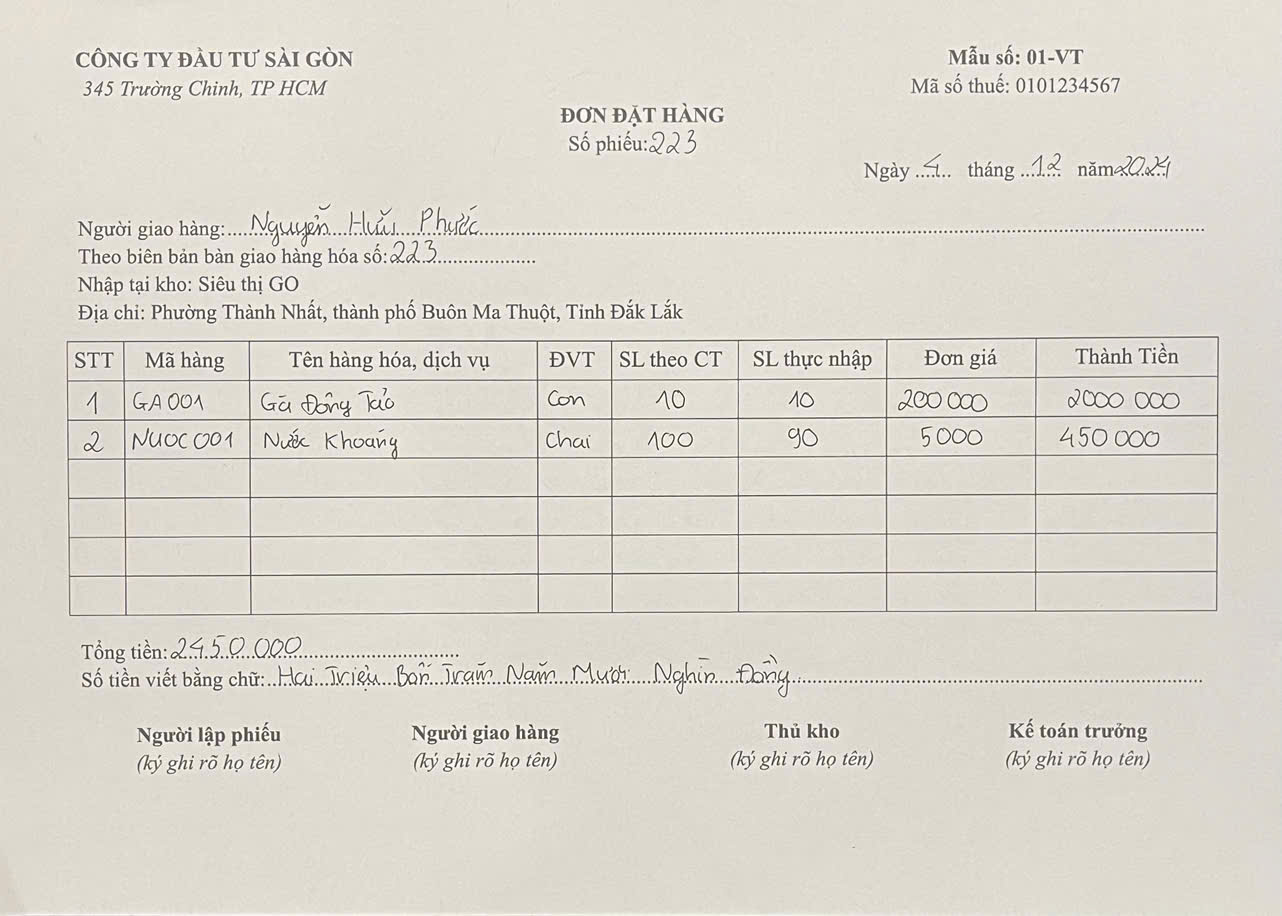 CÔNG TY ĐẦU TƯ SÀI GÒN
345 Trường Chinh, TP HCM
Mẫu số: 01-VT
Mã số thuế: 0101234567
ĐƠN ĐẶT HÀNG
Số phiếu: 223
Ngày 4 tháng 12 năm 2024
Người giao hàng: Nguyễn Hữu Phước
Theo biên bản bàn giao hàng hóa số: 223
Nhập tại kho: Siêu thị GO
Địa chỉ: Phường Thành Nhất, thành phố Buôn Ma Thuột, Tỉnh Đắk Lắk
STT Mã hàng Tên hàng hóa, dịch vụ ĐVT SL theo CT SL thực nhập Đơn giá Thành Tiền
1 GA001 Gà Đông Tảo Con 10 10 200 000 2000 000
2 NUOC001 Nước Khoáng Chai 100 90 5000 450 000
Tổng tiền: 2450.000
Số tiền viết bằng chữ: Hai Triệu Bốn Trăm Năm Mươi Nghìn Đồng
Người lập phiếu Người giao hàng Thủ kho Kế toán trưởng
(ký ghi rõ họ tên) (ký ghi rõ họ tên) (ký ghi rõ họ tên) (ký ghi rõ họ tên)